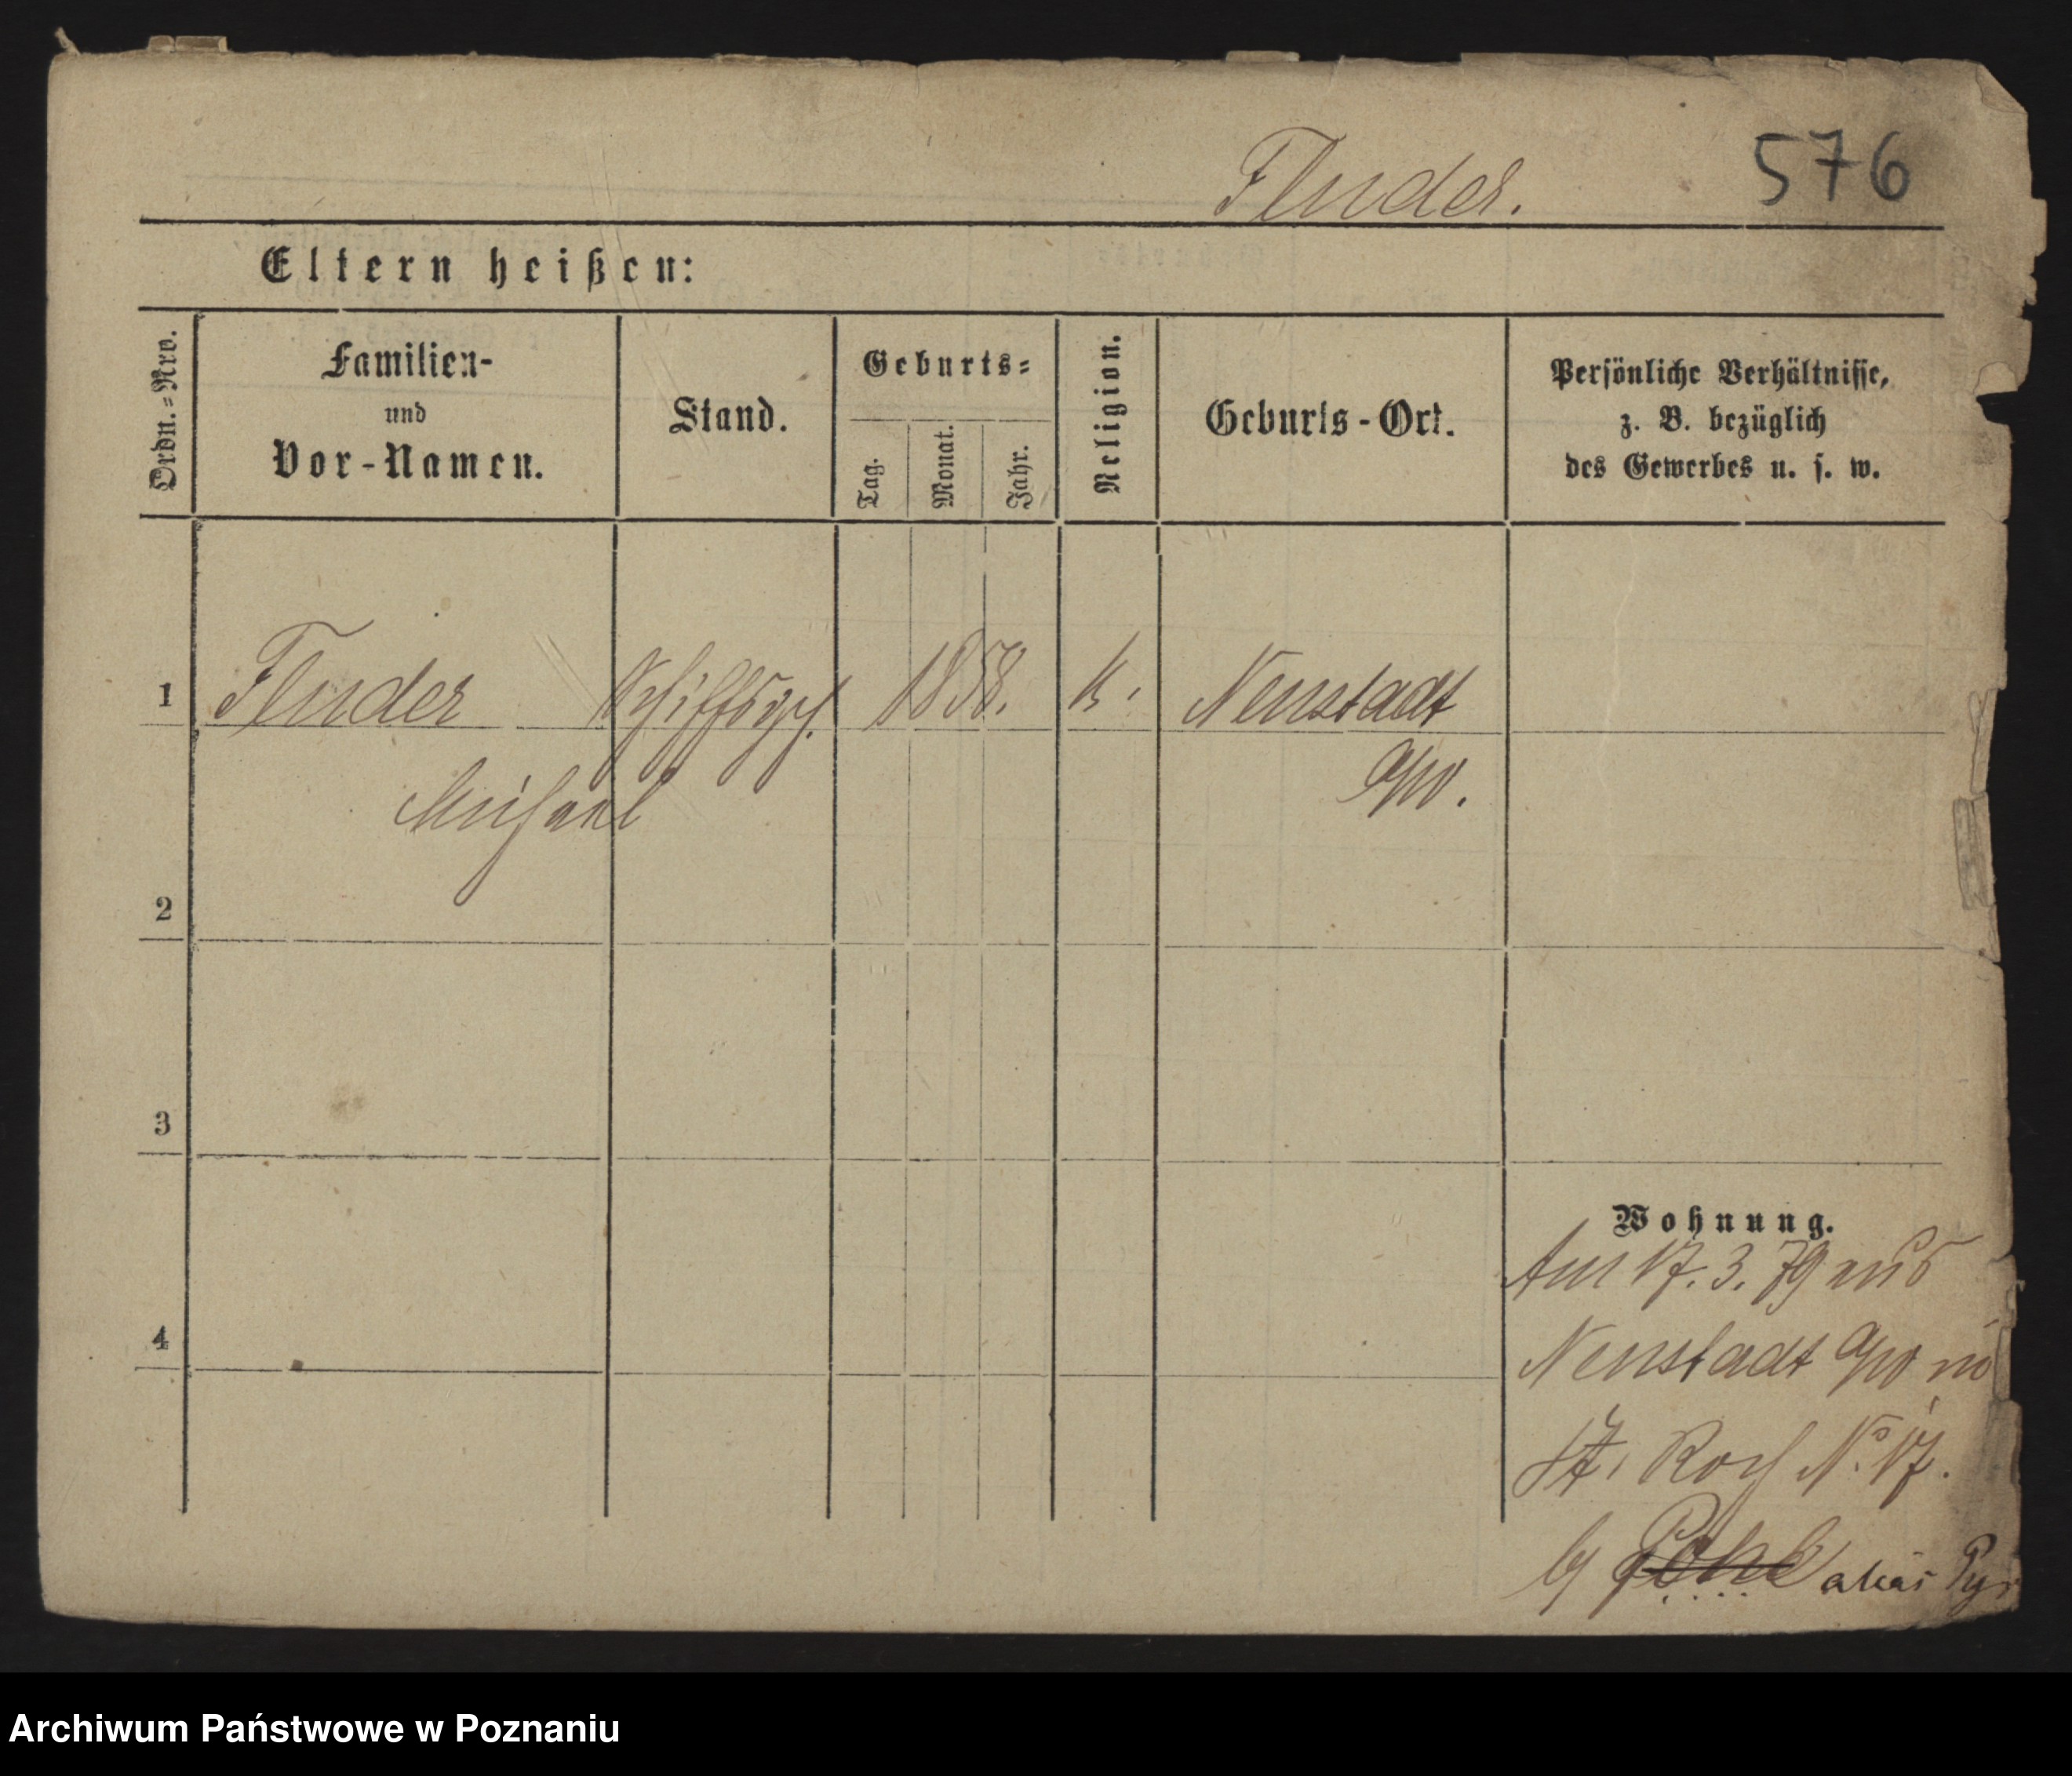 Fluder.
576
Eltern heißen:
Ordn.=Nro.
Familien-
und
Vor-Namen.
Stand.
Geburts=
Tag.
Monat.
Jahr.
Religion.
Geburts-Ort.
Persönliche Verhältnisse,
z. B. bezüglich
des Gewerbes u. s. w.
1
Fluder
Schiffsgh.
1858.
k.
Neustadt
Michael
a/w.
2
3
4
Wohnung.
Am 17. 3. 79 aus
Neustadt a/w
St. Roch No. 17.
b/ alias
Archiwum Państwowe w Poznaniu